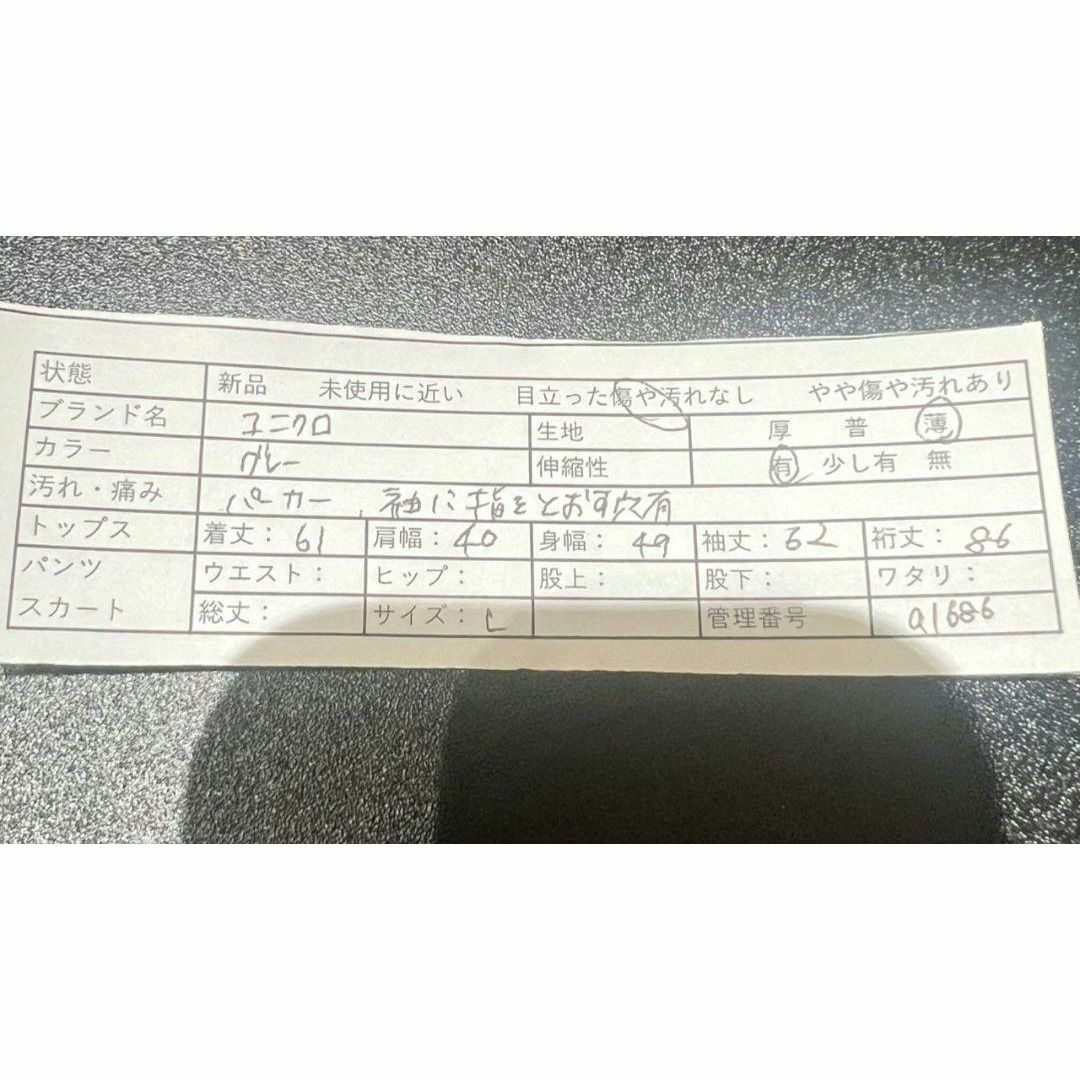 状態 新品 未使用に近い 目立った傷や汚れなし やや傷や汚れあり
ブランド名 ユニクロ 生地 厚 普 薄
カラー グレー 伸縮性 有 少し有 無
汚れ・痛み パーカー、袖に指をとおす穴有
トップス 着丈：61 肩幅：40 身幅：49 袖丈：62 裄丈：86
パンツ ウエスト： ヒップ： 股上： 股下： ワタリ：
スカート 総丈： サイズ：L 管理番号 a1686